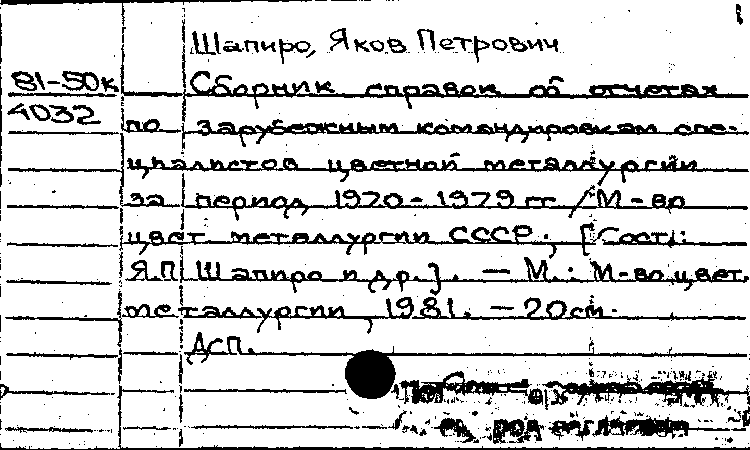 Шапиро, Яков Петрович
81-50к Сборник справок об отчетах
4032 по зарубежным командировкам спе-
циалистов цветной металлургии
за период 1970-1979 гг. / М-во
цвет. металлургии СССР; [Сост.:
Я.П. Шапиро и др.]. — М.: М-во цвет.
металлургии, 1981. — 20 см.
ДСП.
под заглавием